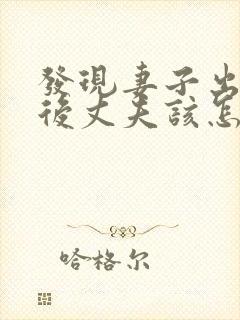 發現妻子出
後丈夫該怎
哈格尔